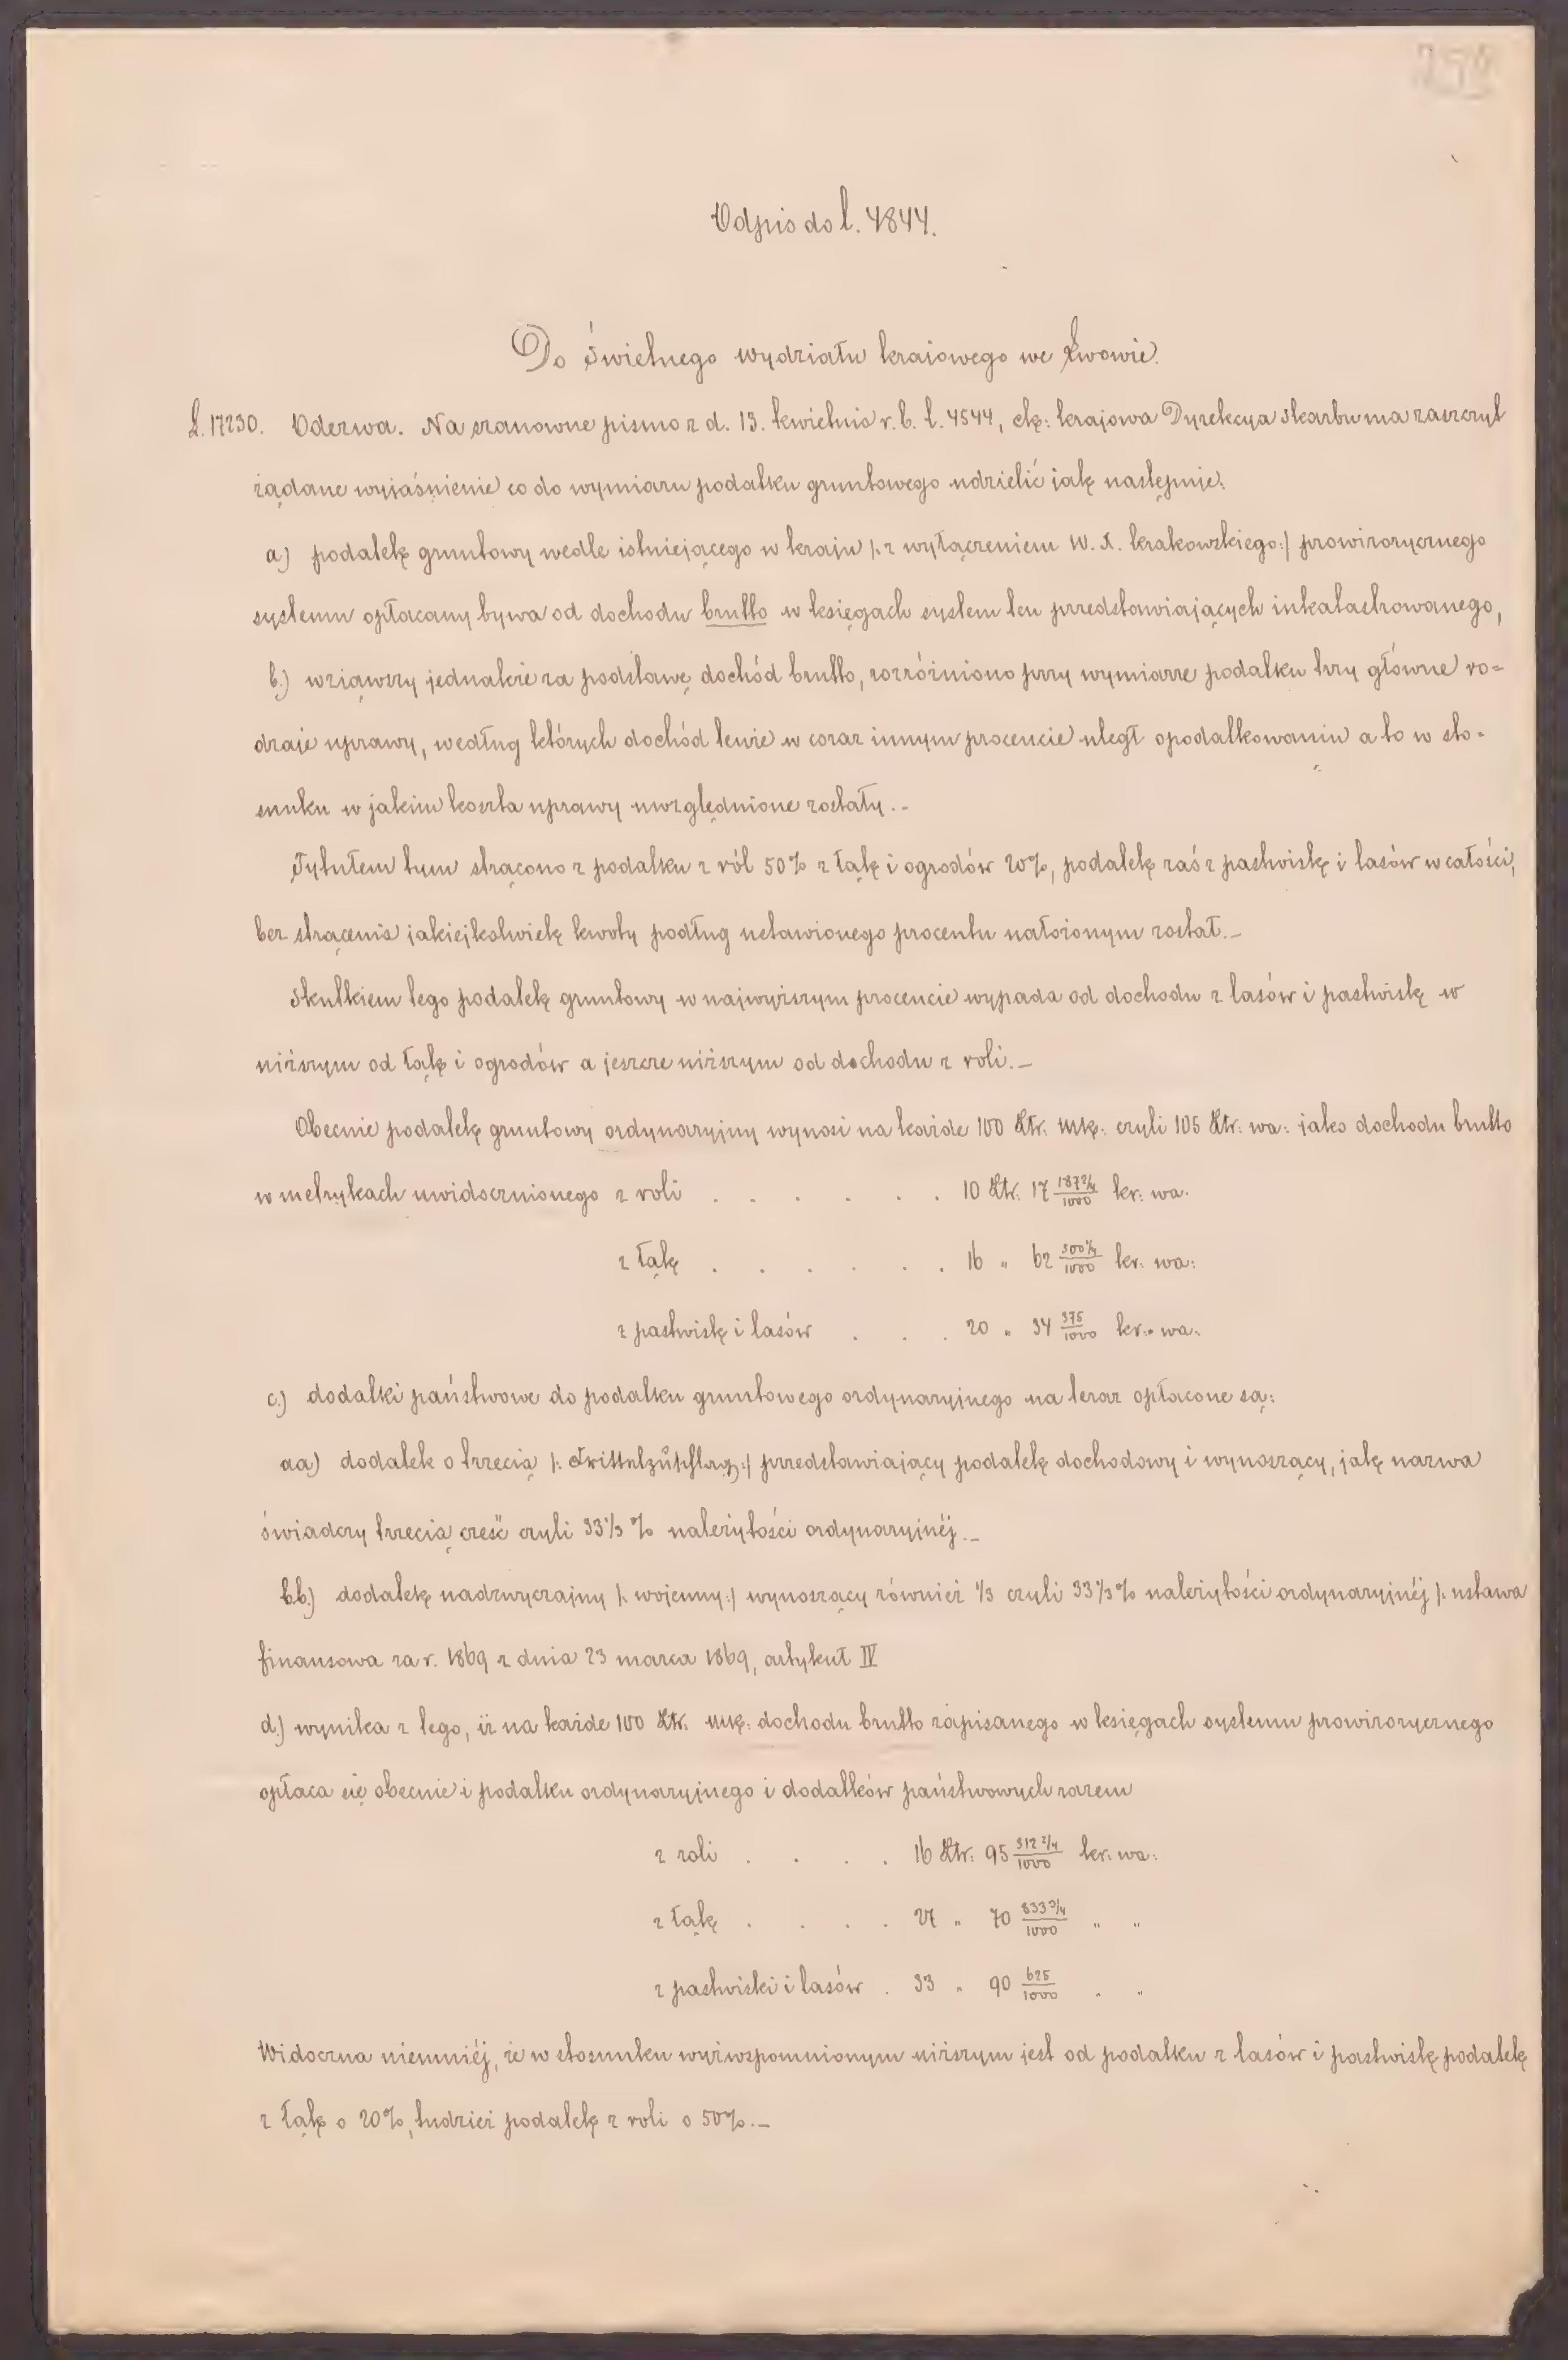 Odpis do l. 4844.
Do Świetnego wydziału krajowego we Lwowie.
L. 17230. Odezwa. Na szanowne pismo z d. 13. kwietnia r. b. l. 4544, ck: krajowa Dyrekcya skarbu ma zaszczyt
żądane wyjaśnienie co do wymiaru podatku gruntowego udzielić jak następuje:
a) podatek gruntowy wedle istniejącego w kraju /: z wyłączeniem W. X. krakowskiego:/ prowizorycznego
systemu opłacany bywa od dochodu brutto w księgach system ten przedstawiających inkatastrowanego,
b.) wziąwszy jednakże za podstawę dochód brutto, rozróżniono przy wymiarze podatku trzy główne ro=
dzaje uprawy, według których dochód tenże w coraz innym procencie uległ opodatkowaniu a to w sto=
sunku w jakim koszta uprawy uwzględnione zostały.–
Tytułem tym strącono z podatku z ról 50% z łąk i ogrodów 20%, podatek zaś z pastwisk i lasów w całości,
bez strącenia jakiejkolwiek kwoty podług ustawionego procentu nałożonym został.–
Skutkiem tego podatek gruntowy w najwyższym procencie wypada od dochodu z lasów i pastwisk w
niższym od łąk i ogrodów a jeszcze niższym od dochodu z roli.–
Obecnie podatek gruntowy ordynaryjny wynosi na każde 100 Złr. mk: czyli 105 Złr: wa: jako dochodu brutto
w metrykach uwidocznionego z roli . . . . . . 10 Złr. 17 187 2/4/1000 kr: wa.
z łąk . . . . . . 16 „ 62 500 1/4/1000 kr: wa:
z pastwisk i lasów . . . 20 „ 34 375/1000 kr: wa:
c.) dodatki państwowe do podatku gruntowego ordynaryjnego na teraz opłacone są:
aa) dodatek o trzecią /: Drittelzuschlag:/ przedstawiający podatek dochodowy i wynoszący, jak nazwa
świadczy trzecią cześć czyli 33 1/3 % należytości ordynaryjnéj.–
bb.) dodatek nadzwyczajny /: wojenny:/ wynoszący również 1/3 czyli 33 1/3 % należytości ordynaryjnéj /: ustawa
finansowa za r. 1869 z dnia 23 marca 1869, artykuł IV
d.) wynika z tego, iż na każde 100 Złr. mk: dochodu brutto zapisanego w księgach systemu prowizorycznego
opłaca się obecnie i podatku ordynaryjnego i dodatków państwowych razem
z roli . . . . 16 Złr: 95 312 2/4/1000 kr: wa:
z łąk . . . . 27 „ 70 833 3/4/1000 „ „
z pastwiski i lasów . 33 „ 90 625/1000 „ „
Widoczna niemniéj, że w stosunku wyżwspomnionym niższym jest od podatku z lasów i pastwisk podatek
z łąk o 20%, tudzież podatek z roli o 50%.–